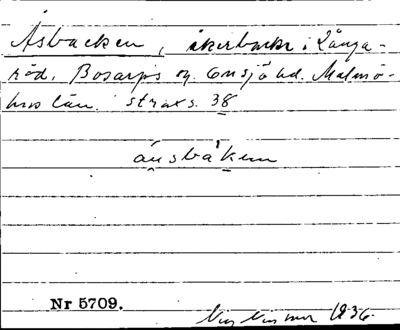 Åsbacken, åkerbacke i Långa-
röd, Bosarps sn. Onsjö hd. Malmö-
hus län. strax s. 38
áusbàken
Nr 5709.
1936.